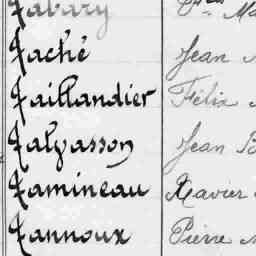 Tabary
Taché Jean
Taillandier Félix
Jean
Tamineau Xavier
Tannoux Pierre